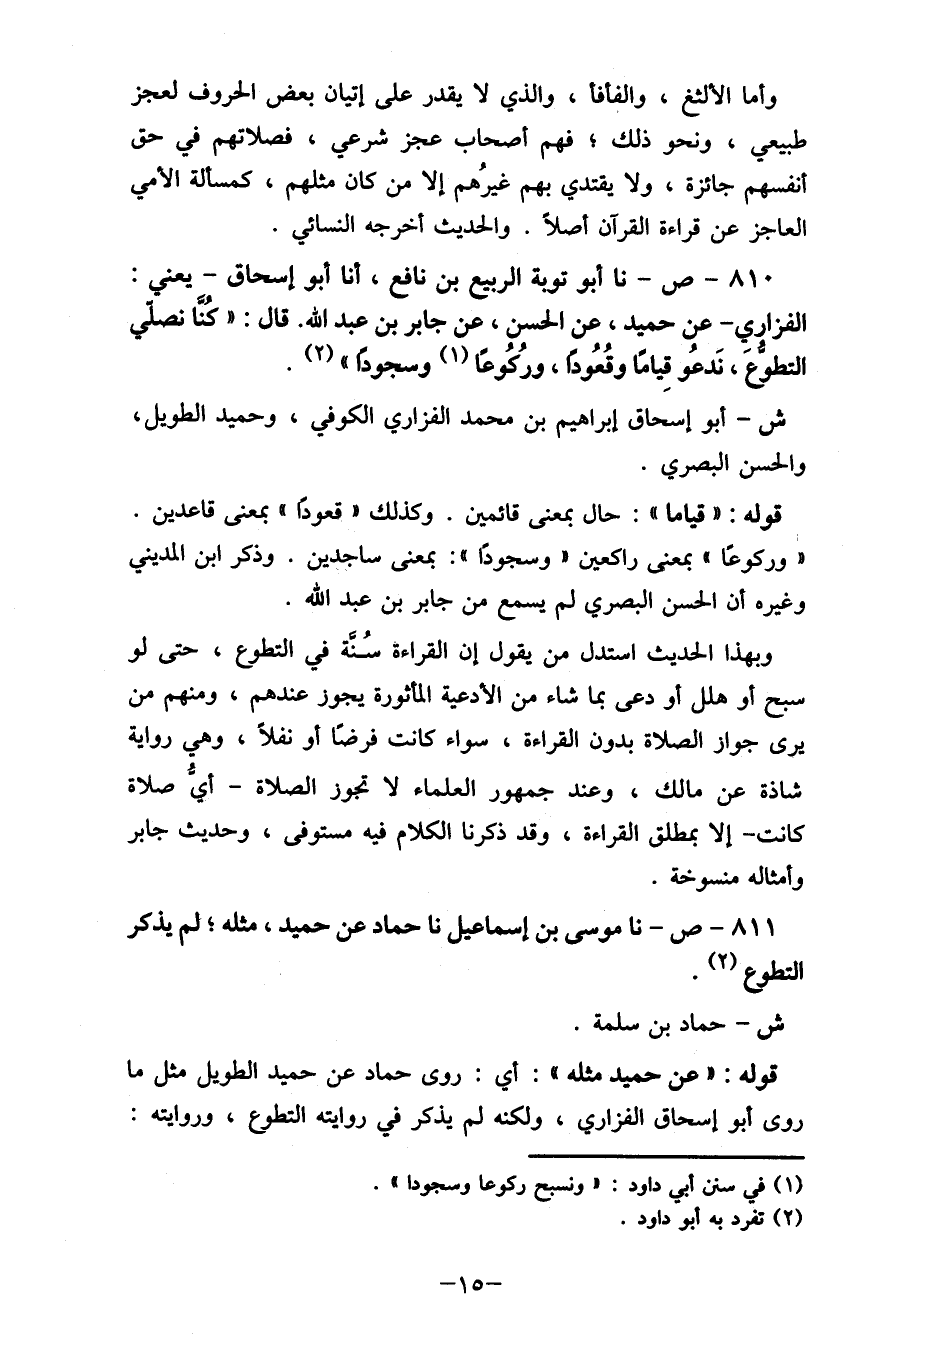 وأما الألثغ ، والفأفأ ، والذي لا يقدر على إتيان بعض الحروف لعجز
طبيعي ، ونحو ذلك ؛ فهم أصحاب عجز شرعي ، فصلاتهم في حق
أنفسهم جائزة ، ولا يقتدي بهم غيرُهم إلا من كان مثلهم ، كمسألة الأمي
العاجز عن قراءة القرآن أصلاً . والحديث أخرجه النسائي .
٨١٠ - ص - نا أبو توبة الربيع بن نافع ، أنا أبو إسحاق - يعني :
الفزاري- عن حميد ، عن الحسن ، عن جابر بن عبد الله. قال : « كُنَّا نصلّي
التطوُّعَ ، نَدعُو قِيامًا وقُعُودًا ، ورُكُوعًا (١) وسجودًا » (٢) .
ش - أبو إسحاق إبراهيم بن محمد الفزاري الكوفي ، وحميد الطويل،
والحسن البصري .
قوله : « قياما » : حال بمعنى قائمين . وكذلك « قعودًا » بمعنى قاعدين .
« وركوعًا » بمعنى راكعين « وسجودًا »: بمعنى ساجدين . وذكر ابن المديني
وغيره أن الحسن البصري لم يسمع من جابر بن عبد الله .
وبهذا الحديث استدل من يقول إن القراءة سُنَّة في التطوع ، حتى لو
سبح أو هلل أو دعى بما شاء من الأدعية المأثورة يجوز عندهم ، ومنهم من
يرى جواز الصلاة بدون القراءة ، سواء كانت فرضًا أو نفلاً ، وهي رواية
شاذة عن مالك ، وعند جمهور العلماء لا تجوز الصلاة - أيُّ صلاة
كانت- إلا بمطلق القراءة ، وقد ذكرنا الكلام فيه مستوفى ، وحديث جابر
وأمثاله منسوخة .
٨١١ - ص - نا موسى بن إسماعيل نا حماد عن حميد ، مثله ؛ لم يذكر
التطوع (٢) .
ش - حماد بن سلمة .
قوله : « عن حميد مثله » : أي : روى حماد عن حميد الطويل مثل ما
روى أبو إسحاق الفزاري ، ولكنه لم يذكر في روايته التطوع ، وروايته :
(١) في سنن أبي داود : « ونسبح ركوعا وسجودا » .
(٢) تفرد به أبو داود .
-١٥-